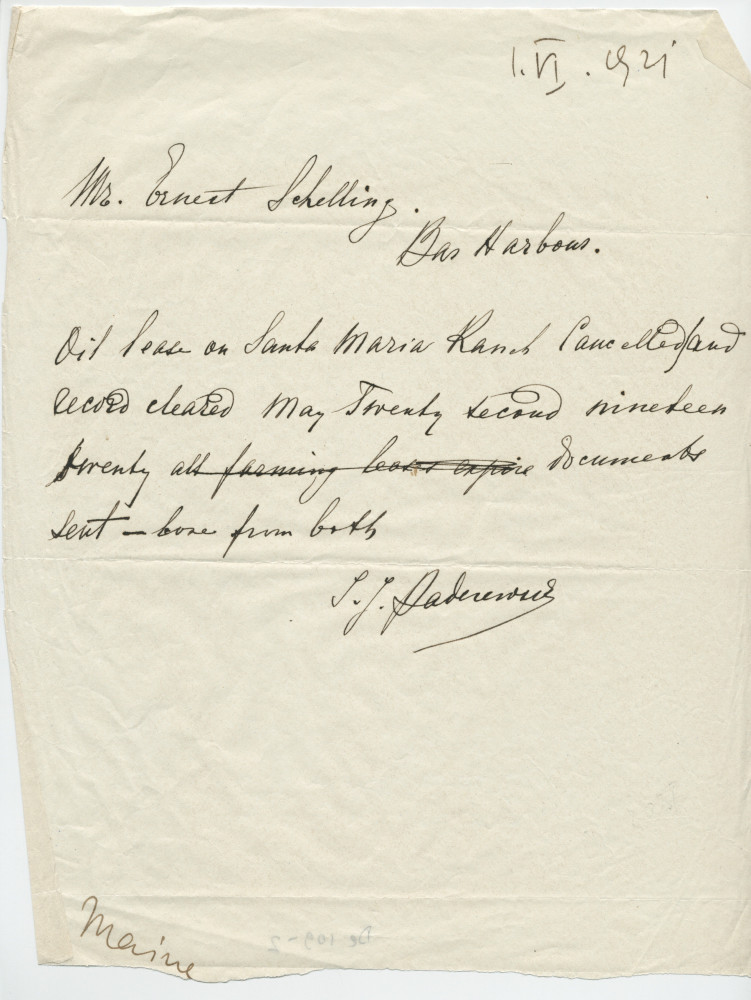 1. VI. 1921
Mr. Ernest Schelling.
Bar Harbour.
Oil lease on Santa Maria Ranch Cancelled and
record cleared May Twenty second nineteen
twenty all farming leases expire documents
sent – love from both
I. J. Paderewski
Maine
De 109-2